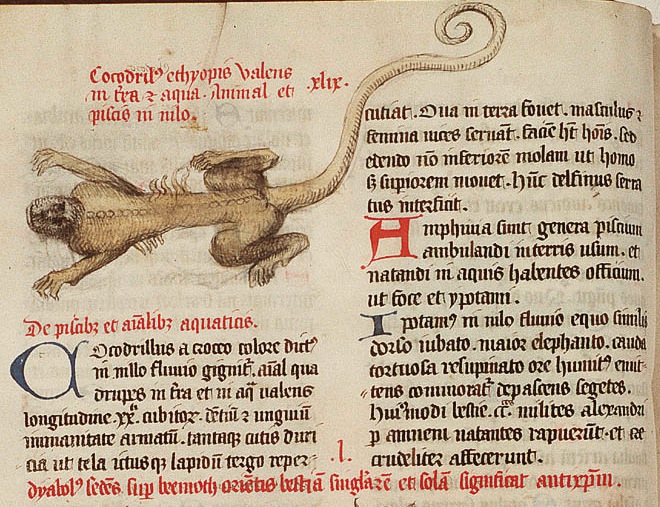 Cocodrilꝰ ethyopis valens
in tra ⁊ aqua. Animal et .xlix.
piscis in nilo.
De piscibꝫ et aialibꝫ aquaticis.
Cocodrillus a crocco colore dictꝰ
in nillo fluvio gignit̄. aīal qua
drupes in tra et in aq̄ valens
longitudine .xx. cubitoꝝ. dētiū ⁊ unguiū
inmanitate armatū. tantaqꝫ cutis duri
cia ut tela ictusqꝫ lapidū tergo reper
cutiat. Oua in terra fouet. masculus ⁊
femina uices seruāt. faciē ht̄ hōis. sed
edendo nō inferiorē molam ut homo
sꝫ supiorem mouet. hūc delfinus serra
tus interficit.
Amphiuia sunt genera piscium
ambulandi in terris usum. et
natandi in aquis habentes officium.
ut foce et ypotami.
Ipotamꝰ in nilo fluuio equo similis
dorso iubato. maior elephanto. cauda
tortuosa resupinato ore
tens depascens segetes.
huiꝰmodi bestie .cc. milites alexandri
p amnem natantes rapuerūt. et
crudeliter affecerunt.
.l.
dyabolꝰ sedēs sup beemoth orientis bestiā singlarē et solā significat antixpm.